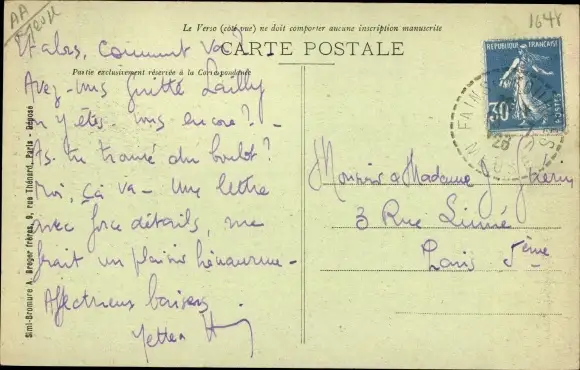 AA
1648
Le Verso (côté vue) ne doit comporter aucune inscription manuscrite
CARTE POSTALE
Partie exclusivement réservée à la Correspondance
Simi-Bromure A. Breger frères, 9, rue Thénard, Paris - Déposé
Et alors, comment va ?
Avez-vous quitté Lailly
n'y êtes-vous encore ? -
As-tu trouvé du boulot ?
Moi, ça va - Une lettre
avec force détails, me
ferait un plaisir hénaurme -
Affectueux baisers
REPUBLIQUE FRANÇAISE
30
POSTES
26
MEUSE
Monsieur & Madame
3 Rue Linné
Paris 5ème